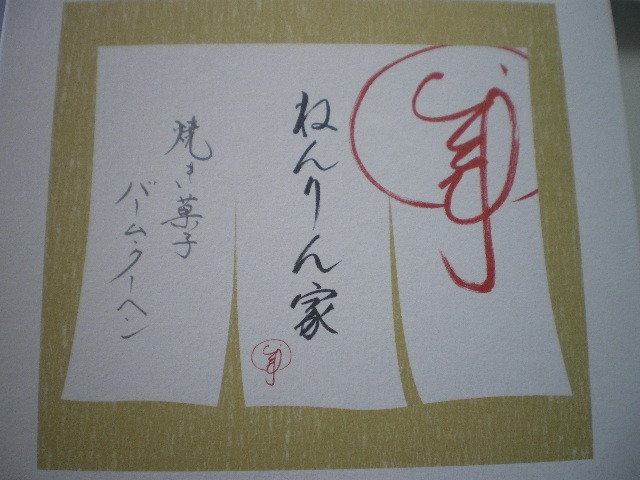 ねんりん家
焼き菓子
バーム・クーヘン